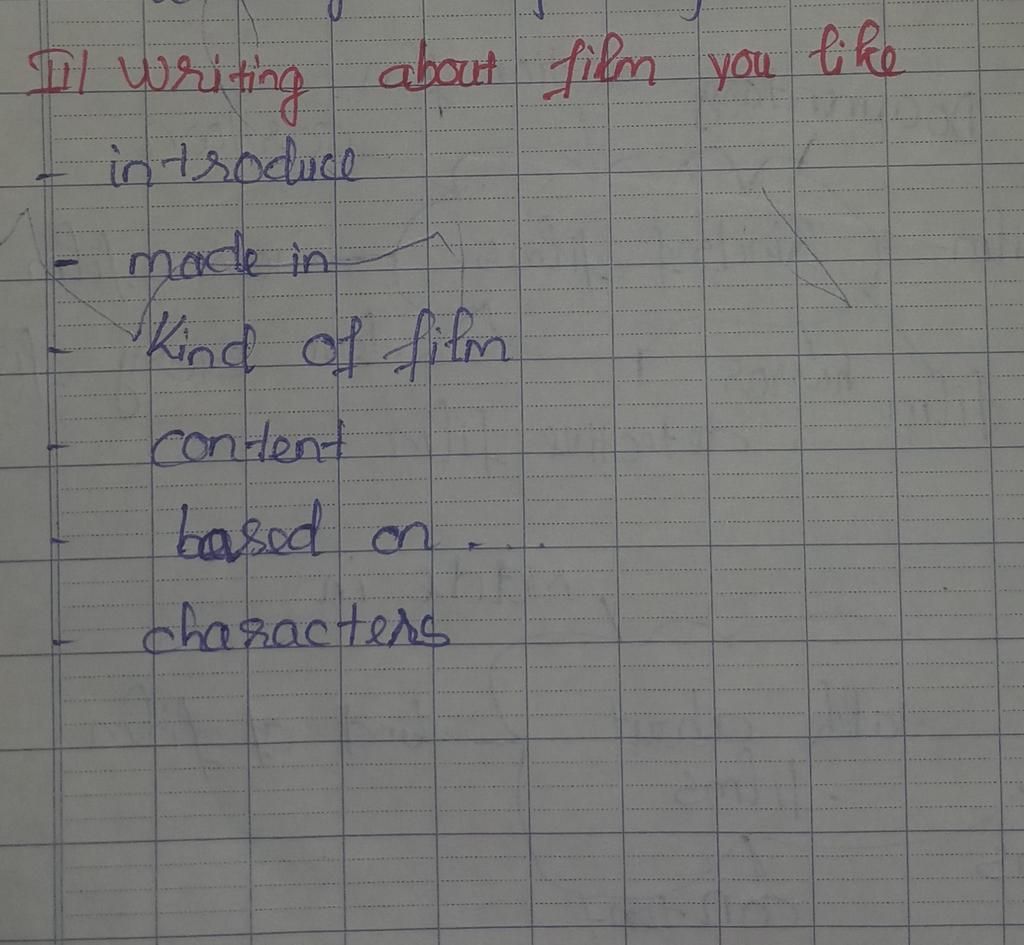 III Writing about film you like
- introduce
- made in
- Kind of film
- content
- based on ....
- characters